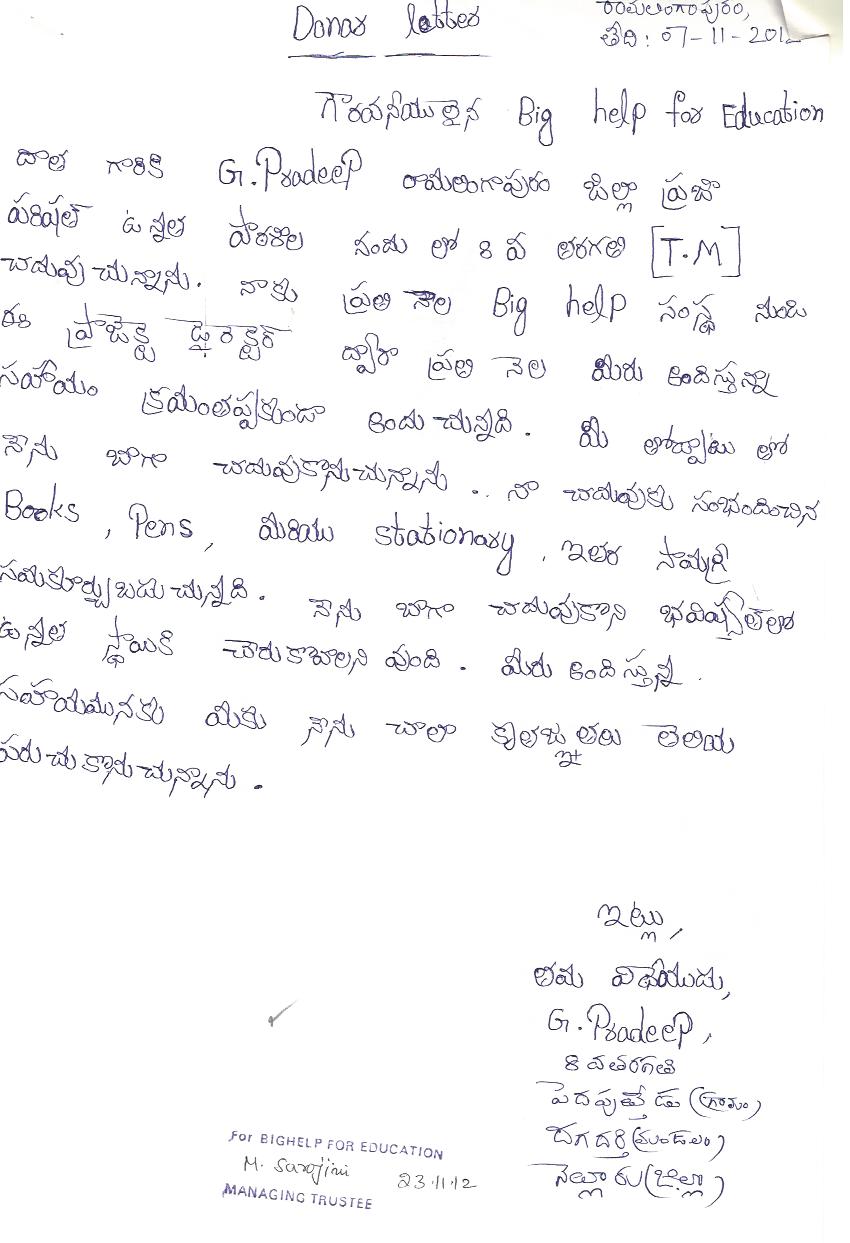 Donar letter
రామలింగాపురం,
తేది: 07-11-2012
గౌరవనీయులైన Big help for Education
దాత గారికి G.Pradeep రామలింగాపురం జిల్లా ప్రజా
పరిషత్ ఉన్నత పాఠశాల నందు లో 8 వ తరగతి [T.M]
చదువు చున్నాను. నాకు ప్రతి నెల Big help సంస్థ నుండి
ఈ ప్రాజెక్ట్ డైరెక్టర్ ద్వారా ప్రతి నెల మీరు అందిస్తున్న
సహాయం క్రమంతప్పకుండా అందు చున్నది. మీ తోడ్పాటు తో
నేను బాగా చదువుకొనుచున్నాను.. నా చదువుకు సంభందించిన
Books, Pens, మరియు stationary, ఇతర సామగ్రి
సమకూర్చుబడు చున్నది. నేను బాగా చదువుకొని భవిష్యత్‌లో
ఉన్నత స్థాయికి చేరుకోవాలని వుంది. మీరు అందిస్తున్న
సహాయమునకు మీకు నేను చాలా కృతజ్ఞతలు తెలియ
పరుచుకొనుచున్నాను.
ఇట్లు,
తమ విధేయుడు,
G.Pradeep,
8 వతరగతి
పెదపుత్తేడు (గ్రామం)
దగదర్తి (మండలం)
నెల్లూరు (జిల్లా)
For BIGHELP FOR EDUCATION
M. Sarojini 23.11.12
MANAGING TRUSTEE